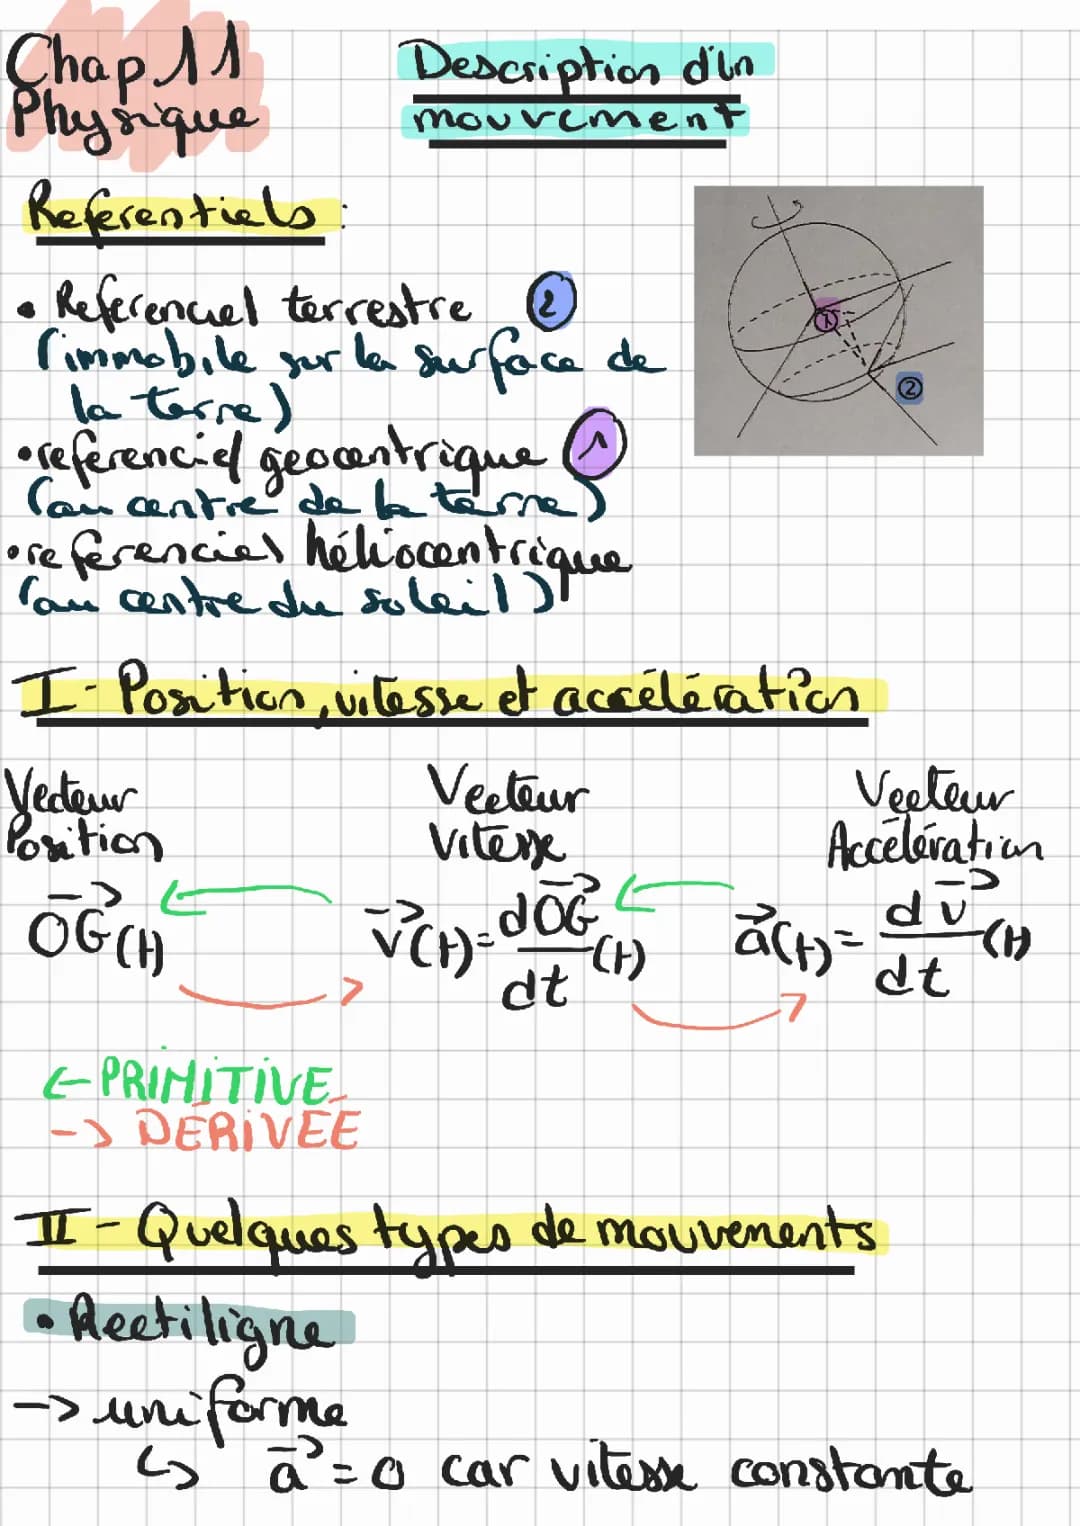 Chap 11
Physique
Description d'un
mouvement
Referentiels :
• Referenciel terrestre 2
(immobile sur la surface de
la terre)
• referenciel geocentrique 1
(au centre de la terre)
• referenciel héliocentrique
(au centre du soleil)
1
2
I - Position, vitesse et accélération
Vecteur
Position
Vecteur
Vitesse
Vecteur
Accélération
OG(t)
v(t) = dOG/dt (t)
a(t) = dv/dt (t)
← PRIMITIVE
-> DÉRIVÉE
II - Quelques types de mouvements
• Rectiligne
-> uniforme
↳ a = 0 car vitesse constante